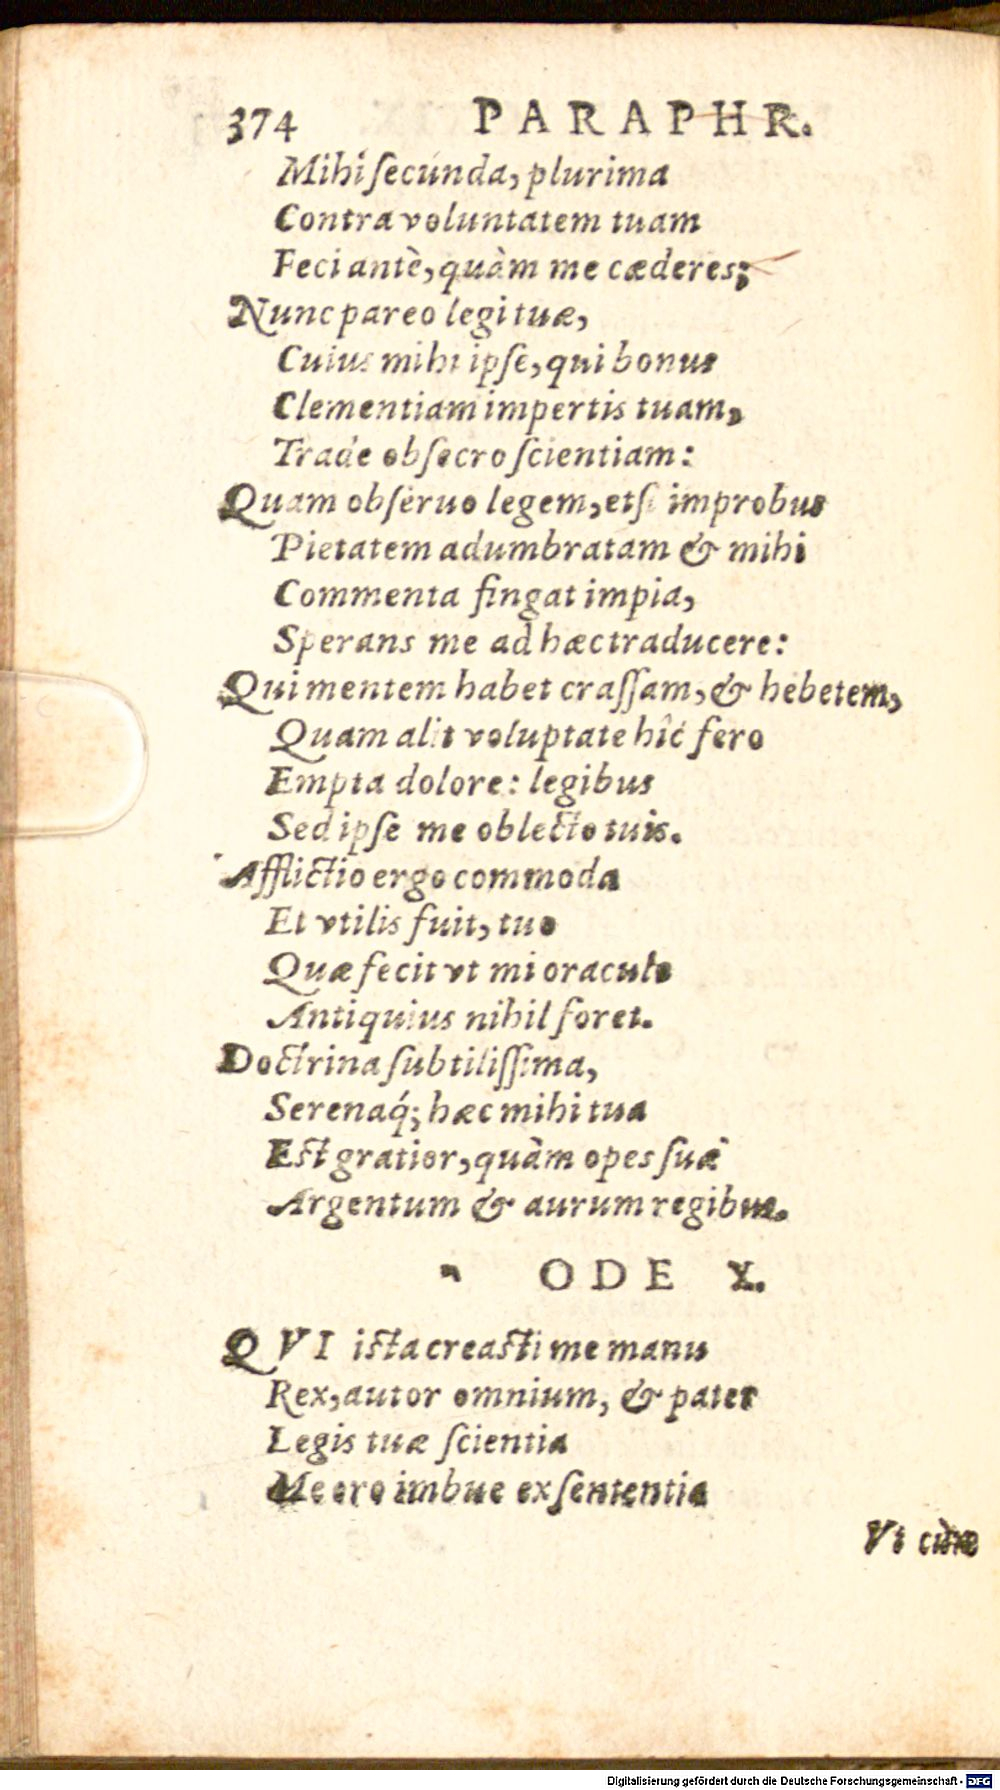 374 PARAPHR.
Mihi ſecunda, plurima
Contra voluntatem tuam
Feci antè, quàm me cæderes;
Nunc pareo legi tuæ,
Cuius mihi ipſe, qui bonus
Clementiam impertis tuam,
Trade obſecro ſcientiam:
Quam obſeruo legem, etſi improbus
Pietatem adumbratam & mihi
Commenta fingat impia,
Sperans me ad hæc traducere:
Qui mentem habet craſſam, & hebetem,
Quam alit voluptate hîc fero
Empta dolore: legibus
Sed ipſe me oblecto tuis.
Afflictio ergo commoda
Et vtilis fuit, tuo
Quæ fecit vt mi oraculo
Antiquius nihil foret.
Doctrina ſubtiliſſima,
Serenaq́; hæc mihi tua
Eſt gratior, quàm opes ſuæ
Argentum & aurum regibus.
ODE X.
QVI iſta creaſti me manu
Rex, autor omnium, & pater
Legis tuæ ſcientia
Me oro imbue ex ſententia
Vt cùm
Digitalisierung gefördert durch die Deutsche Forschungsgemeinschaft - DFG